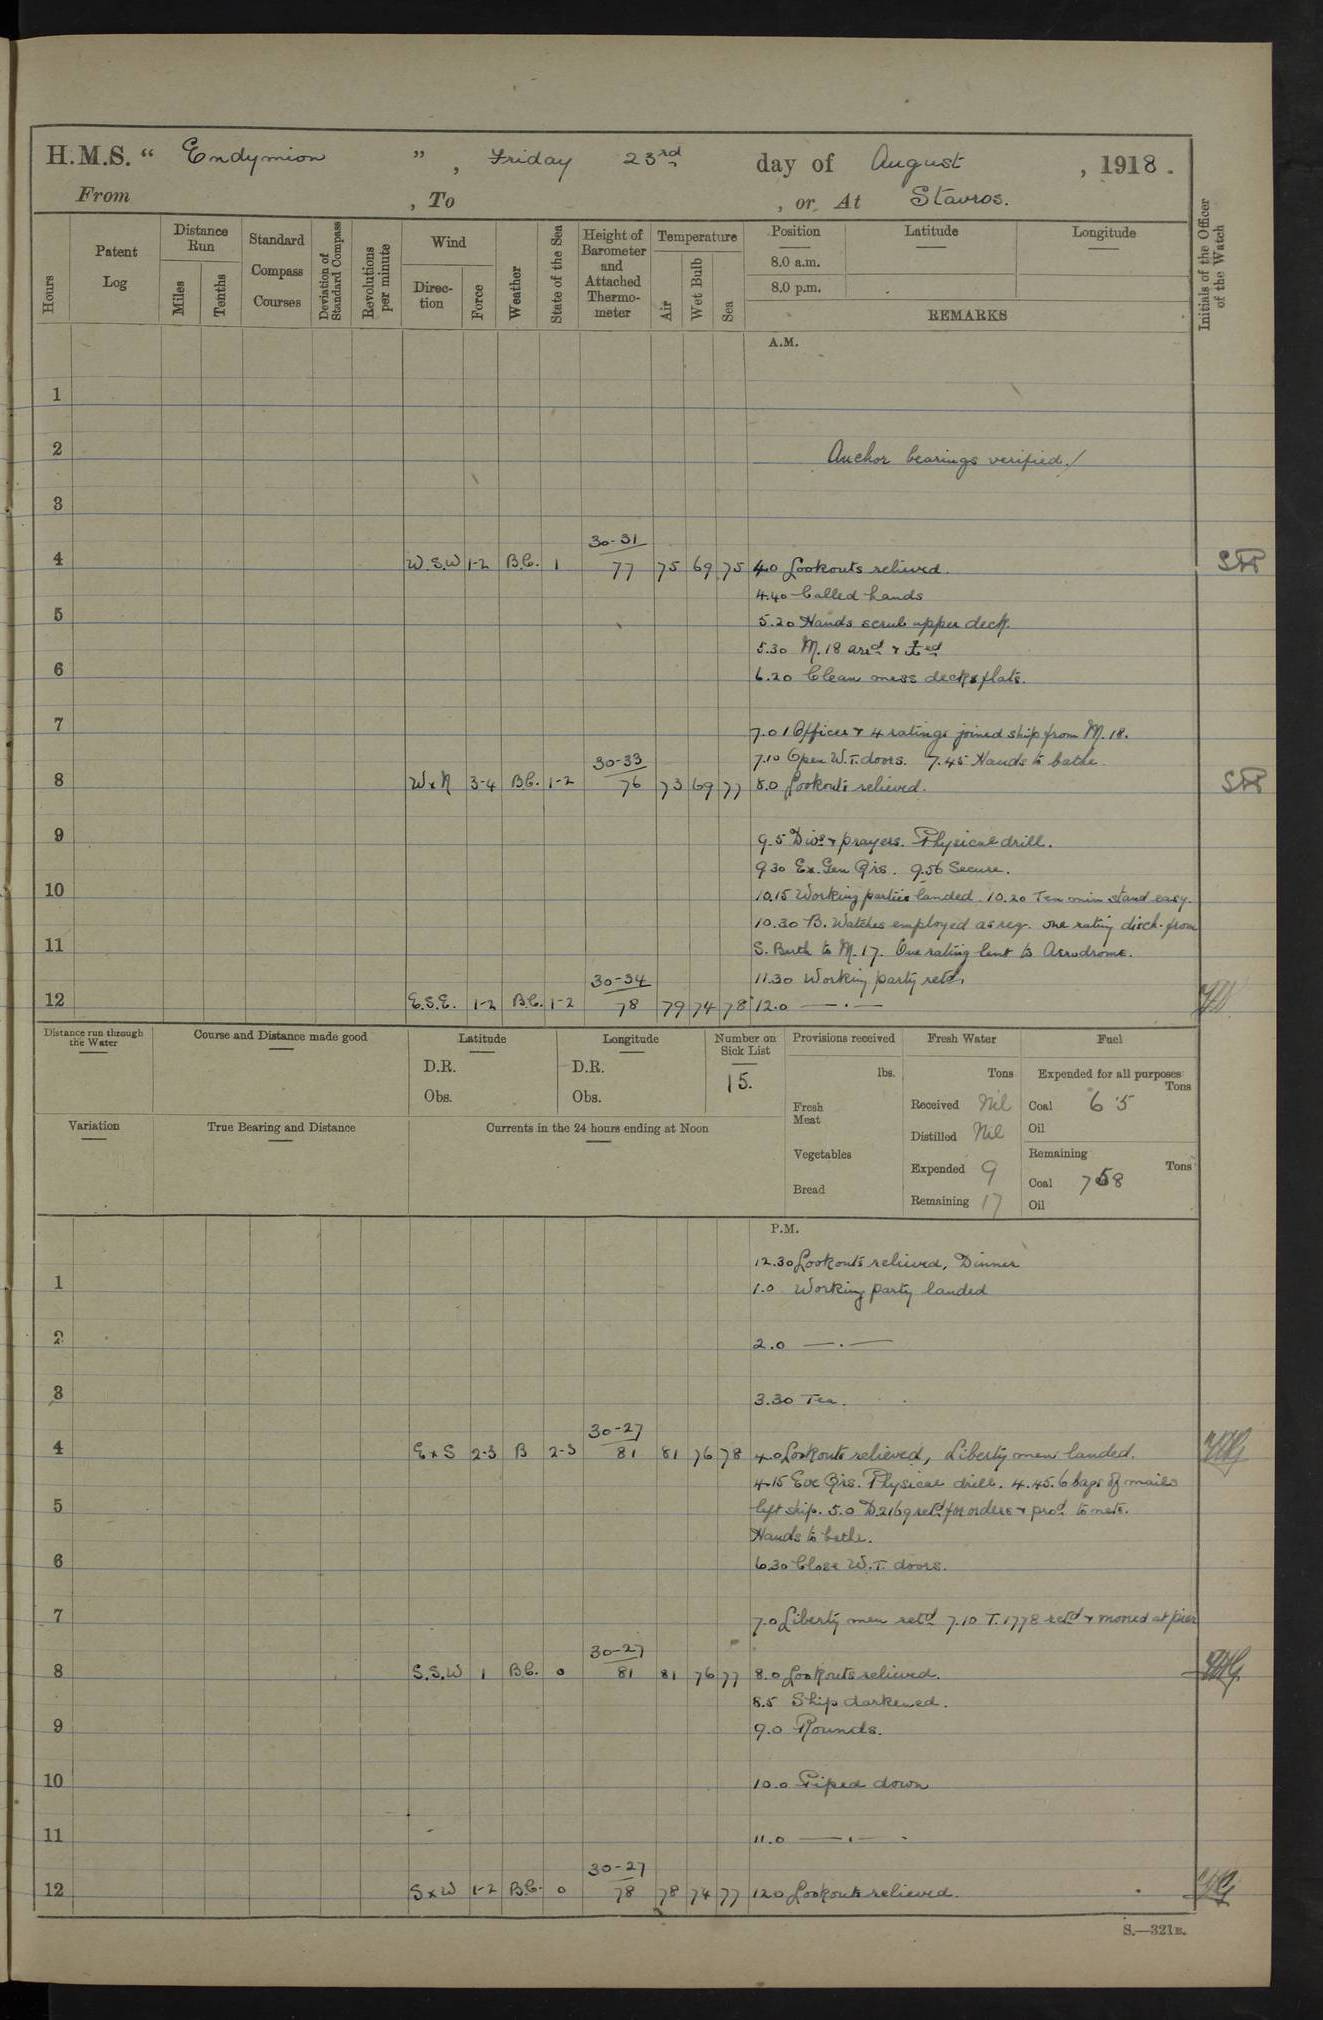 H.M.S. " Endymion ", Friday 23rd day of August, 1918.
From , To , or At Stavros.
Hours
Patent Log
Distance Run
Miles
Tenths
Standard Compass Courses
Deviation of Standard Compass
Revolutions per minute
Wind
Direction
Force
Weather
State of the Sea
Height of Barometer and Attached Thermometer
Temperature
Air
Wet Bulb
Sea
Position
Latitude
Longitude
8.0 a.m.
8.0 p.m.
REMARKS
Initials of the Officer of the Watch
A.M.
1
2 Anchor bearings verified./
3
30-31
4 W.S.W 1-2 B.C. 1 77 75 69 75 4.0 Lookouts relieved.
4.40 Called hands
5
5.20 Hands scrub upper deck.
5.30 M.18 ard &
6
6.20 Clean mess decks flats.
7
7.0 1 Officer & 4 ratings joined ship from M.18.
30-33 7.10 Open W.T. doors. 7.45 Hands to bathe
8 W x N 3-4 B.C. 1-2 76 73 69 77 8.0 Lookouts relieved.
9
9.5 Divs & prayers. Physical drill.
9.30 Ex. Gen Qrs. 9.56 Secure.
10
10.15 Working parties landed. 10.20 Ten min stand easy.
10.30 B. Watches employed as req. One rating disch. from
11
S. Berth to M.17. One rating lent to Aerodrome.
30-34 11.30 Working party retd.
12 E.S.E. 1-2 B.C. 1-2 78 79 74 78 12.0 —.—
Distance run through the Water
Course and Distance made good
Latitude
D.R.
Obs.
Longitude
D.R.
Obs.
Number on Sick List
15.
Provisions received
lbs.
Fresh Meat
Vegetables
Bread
Fresh Water
Tons
Received Nil
Distilled Nil
Expended 9
Remaining 17
Fuel
Expended for all purposes
Tons
Coal 6.5
Oil
Remaining
Tons
Coal 758
Oil
Variation
True Bearing and Distance
Currents in the 24 hours ending at Noon
P.M.
12.30 Lookouts relieved, Dinner
1
1.0 Working party landed
2
2.0 —.—
3
3.30 Tea.
30-27
4 E x S 2-3 B 2-3 81 81 76 78 4.0 Lookouts relieved, Liberty men landed.
4.15 Eve Qrs. Physical drill. 4.45. 6 bags of mails
5
left ship. 5.0 D.2169 retd for orders & procd to nets.
Hands to bathe.
6
6.30 Close W.T. doors.
7
7.0 Liberty men retd 7.10 T.1778 retd & moored at pier
30-27
8 S.S.W 1 B.C. 0 81 81 76 77 8.0 Lookouts relieved.
8.5 Ship darkened.
9
9.0 Rounds.
10
10.0 Piped down
11
11.0 —.—
30-27
12 S x W 1-2 B.C. 0 78 78 74 77 12.0 Lookouts relieved.
S.—321B.